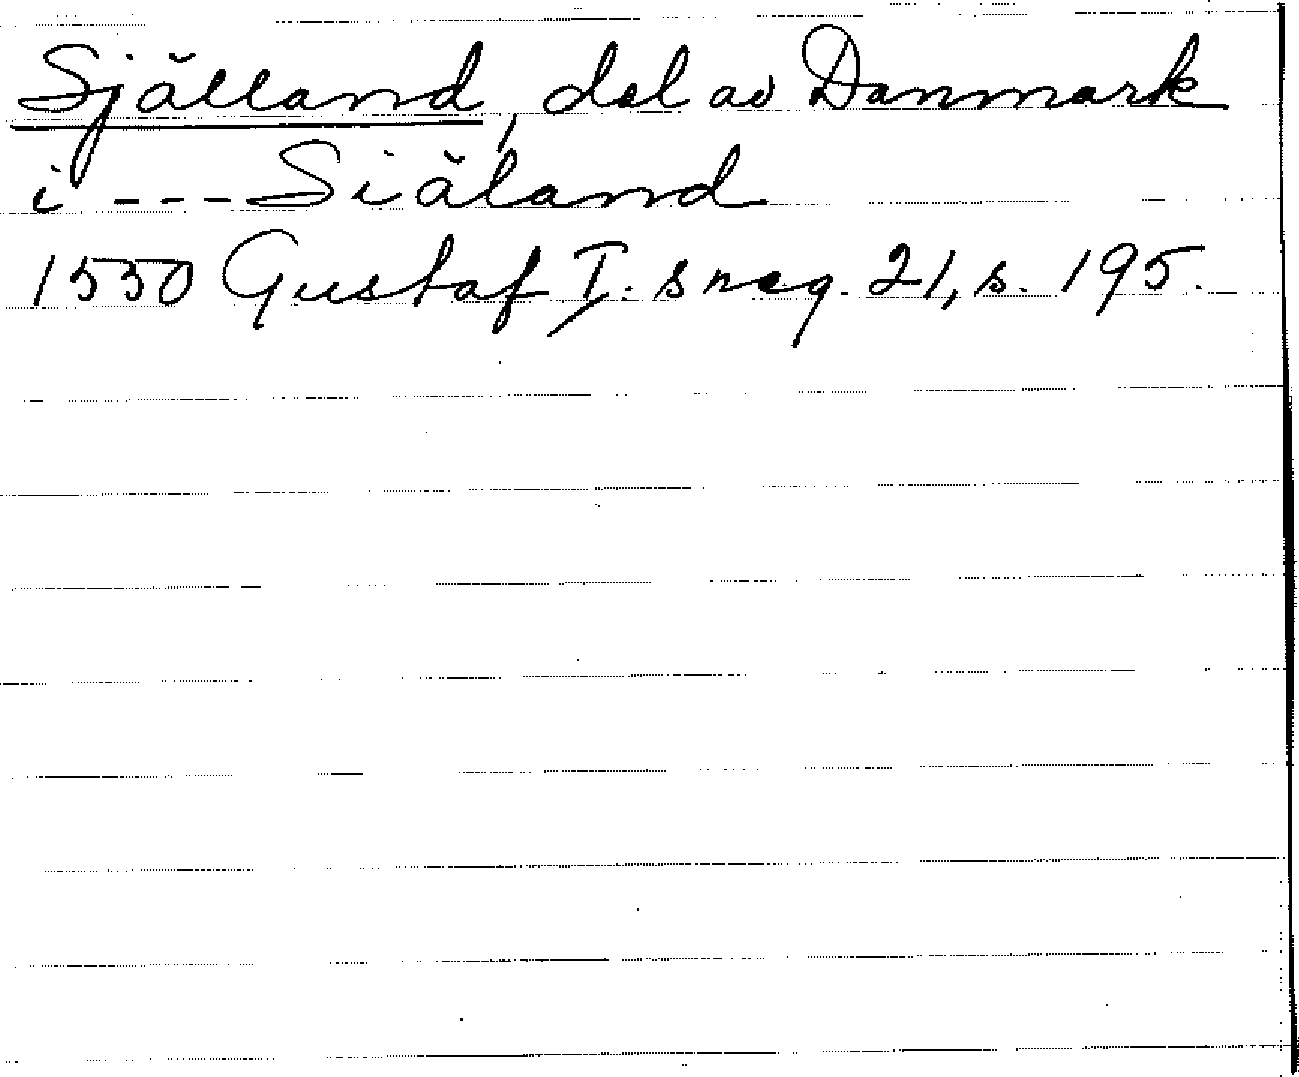 Själland, del av Danmark
i --- Siäland
1550 Gustaf I:s reg. 21, s. 195.